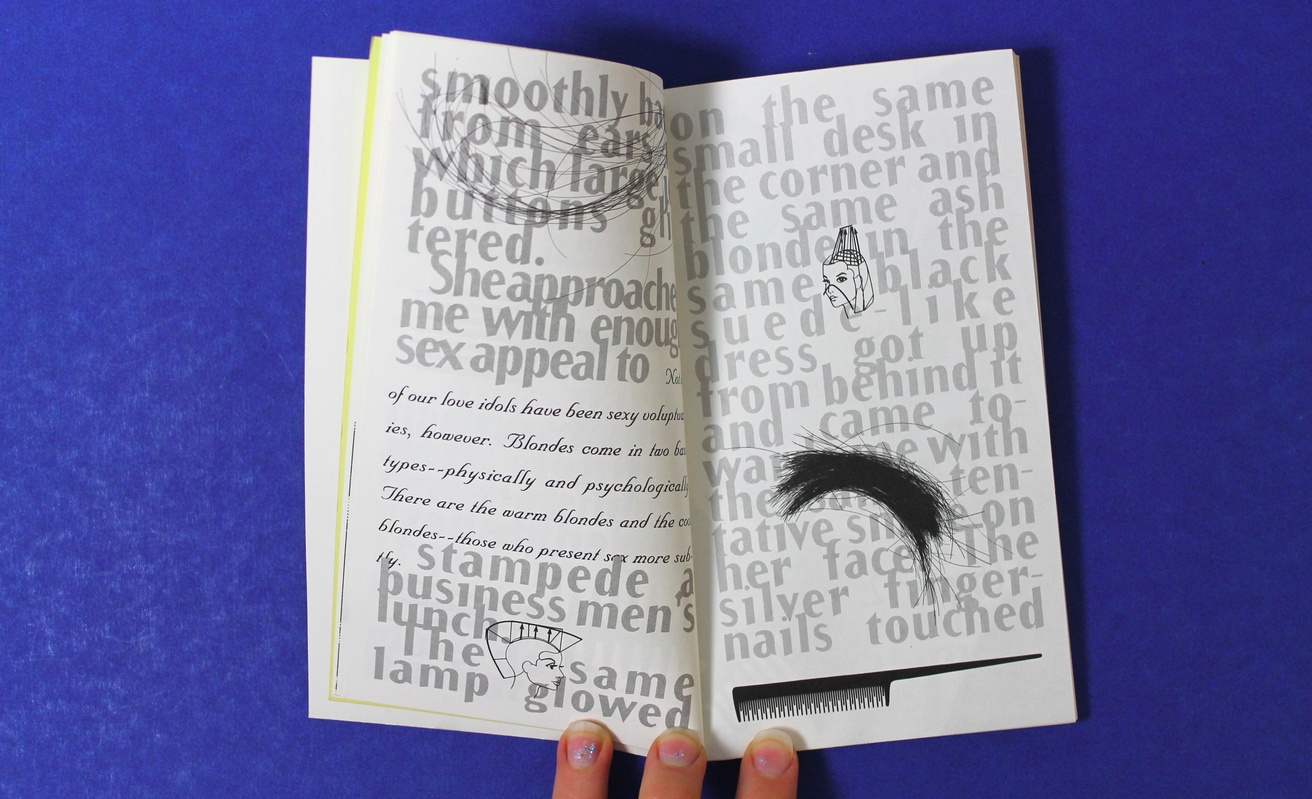 smoothly ba
from ears
which large
buttons gli
tered.
She approache
me with enoug
sex appeal to
No
of our love idols have been sexy voluptu
ies, however. Blondes come in two ba
types--physically and psychologically
There are the warm blondes and the co
blondes--those who present sex more sub-
tly.
stampede a
business men's
lunch.
The same
lamp glowed
on the same
small desk in
the corner and
the same ash
blonde in the
same black
suede-like
dress got up
from behind it
and came to-
ward me with
the same ten-
tative smile on
her face. The
silver finger-
nails touched